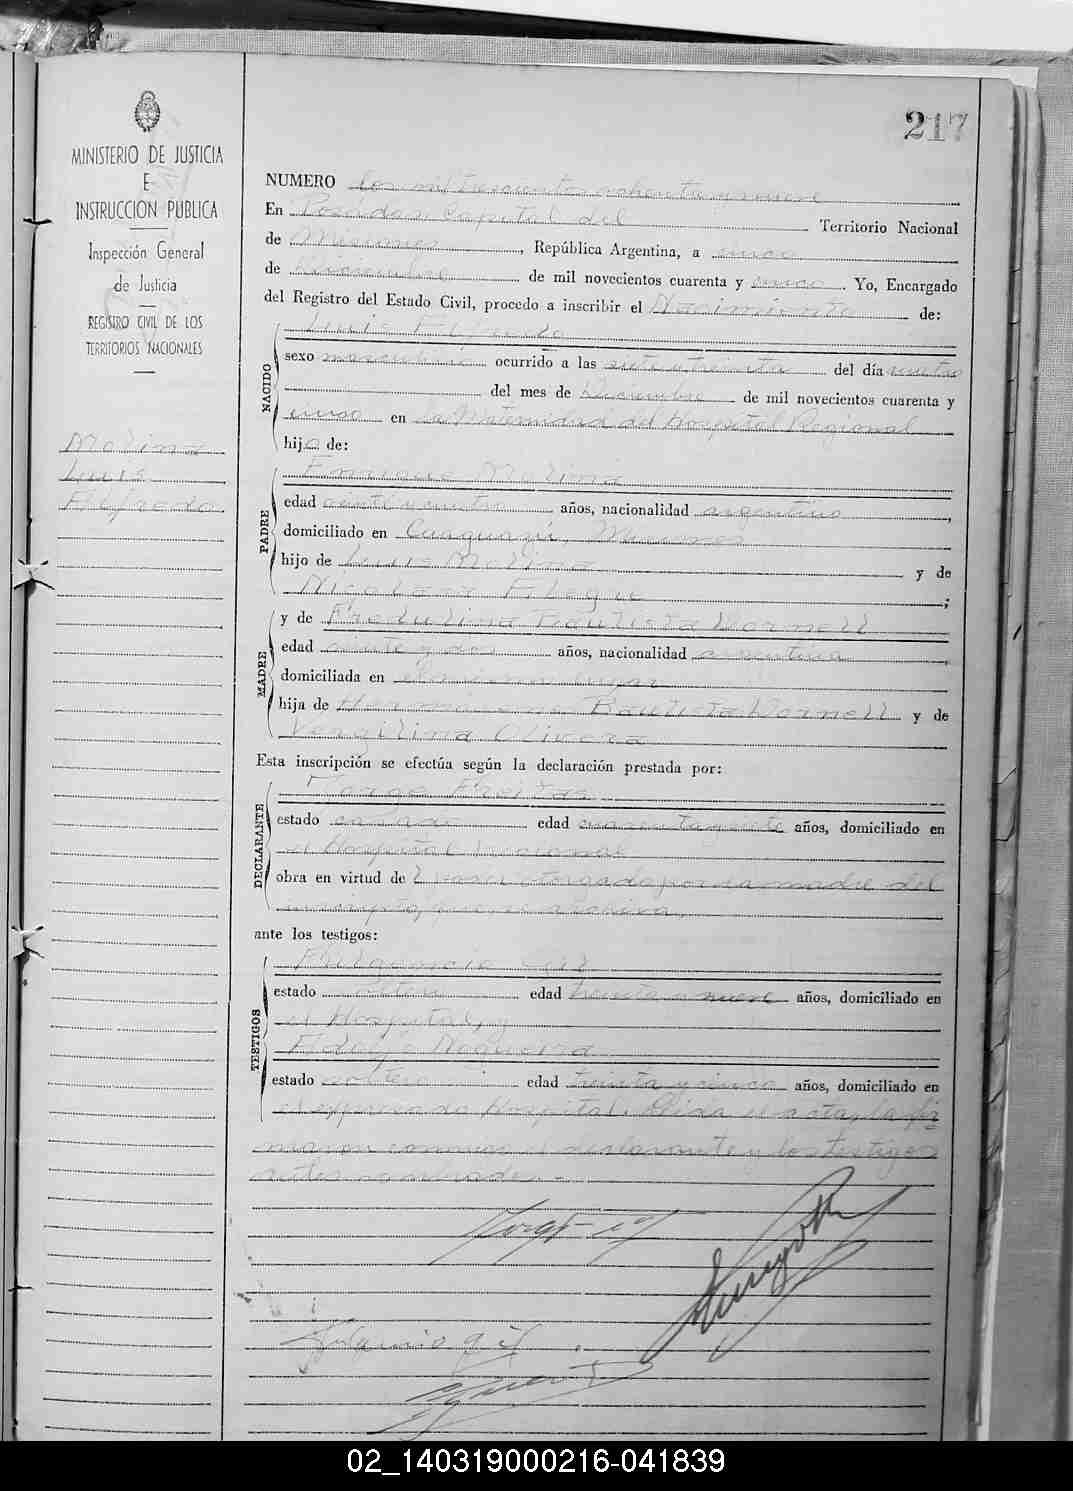 217
MINISTERIO DE JUSTICIA
E
INSTRUCCION PUBLICA
Inspección General
de Justicia
REGISTRO CIVIL DE LOS
TERRITORIOS NACIONALES
Molina
Luis
Alfredo
NUMERO dos mil trescientos ochenta y nueve
En Posadas, Capital del Territorio Nacional
de Misiones, República Argentina, a cinco
de Diciembre de mil novecientos cuarenta y cinco. Yo, Encargado
del Registro del Estado Civil, procedo a inscribir el Nacimiento de:
NACIDO
Luis Alfredo
sexo masculino ocurrido a las siete y treinta del día
del mes de Diciembre de mil novecientos cuarenta y
cinco en la Maternidad del Hospital Regional
hijo de:
PADRE
Enrique Molina
edad veinticuatro años, nacionalidad argentino,
domiciliado en Caaguazú, Misiones
hijo de Luis Molina y de
Nicolasa ;
MADRE
y de Bautista Dornell
edad veinte y dos años, nacionalidad argentina
domiciliada en el mismo lugar
hija de Bautista Dornell y de
Vergilina Olivera
Esta inscripción se efectúa según la declaración prestada por:
DECLARANTE
Jorge Freitas
estado casado edad cuarenta y siete años, domiciliado en
el Hospital Regional
obra en virtud de otorgado por la madre del
inscripto, que se archiva,
ante los testigos:
TESTIGOS
Fulgencio Gil
estado soltero edad treinta y nueve años, domiciliado en
el Hospital, y
Adolfo Nogueira
estado soltero edad treinta y cinco años, domiciliado en
el expresado Hospital. Leída el acta, la fir
maron conmigo el declarante y los testigos
antes nombrados.
Fulgencio Gil
02_140319000216-041839